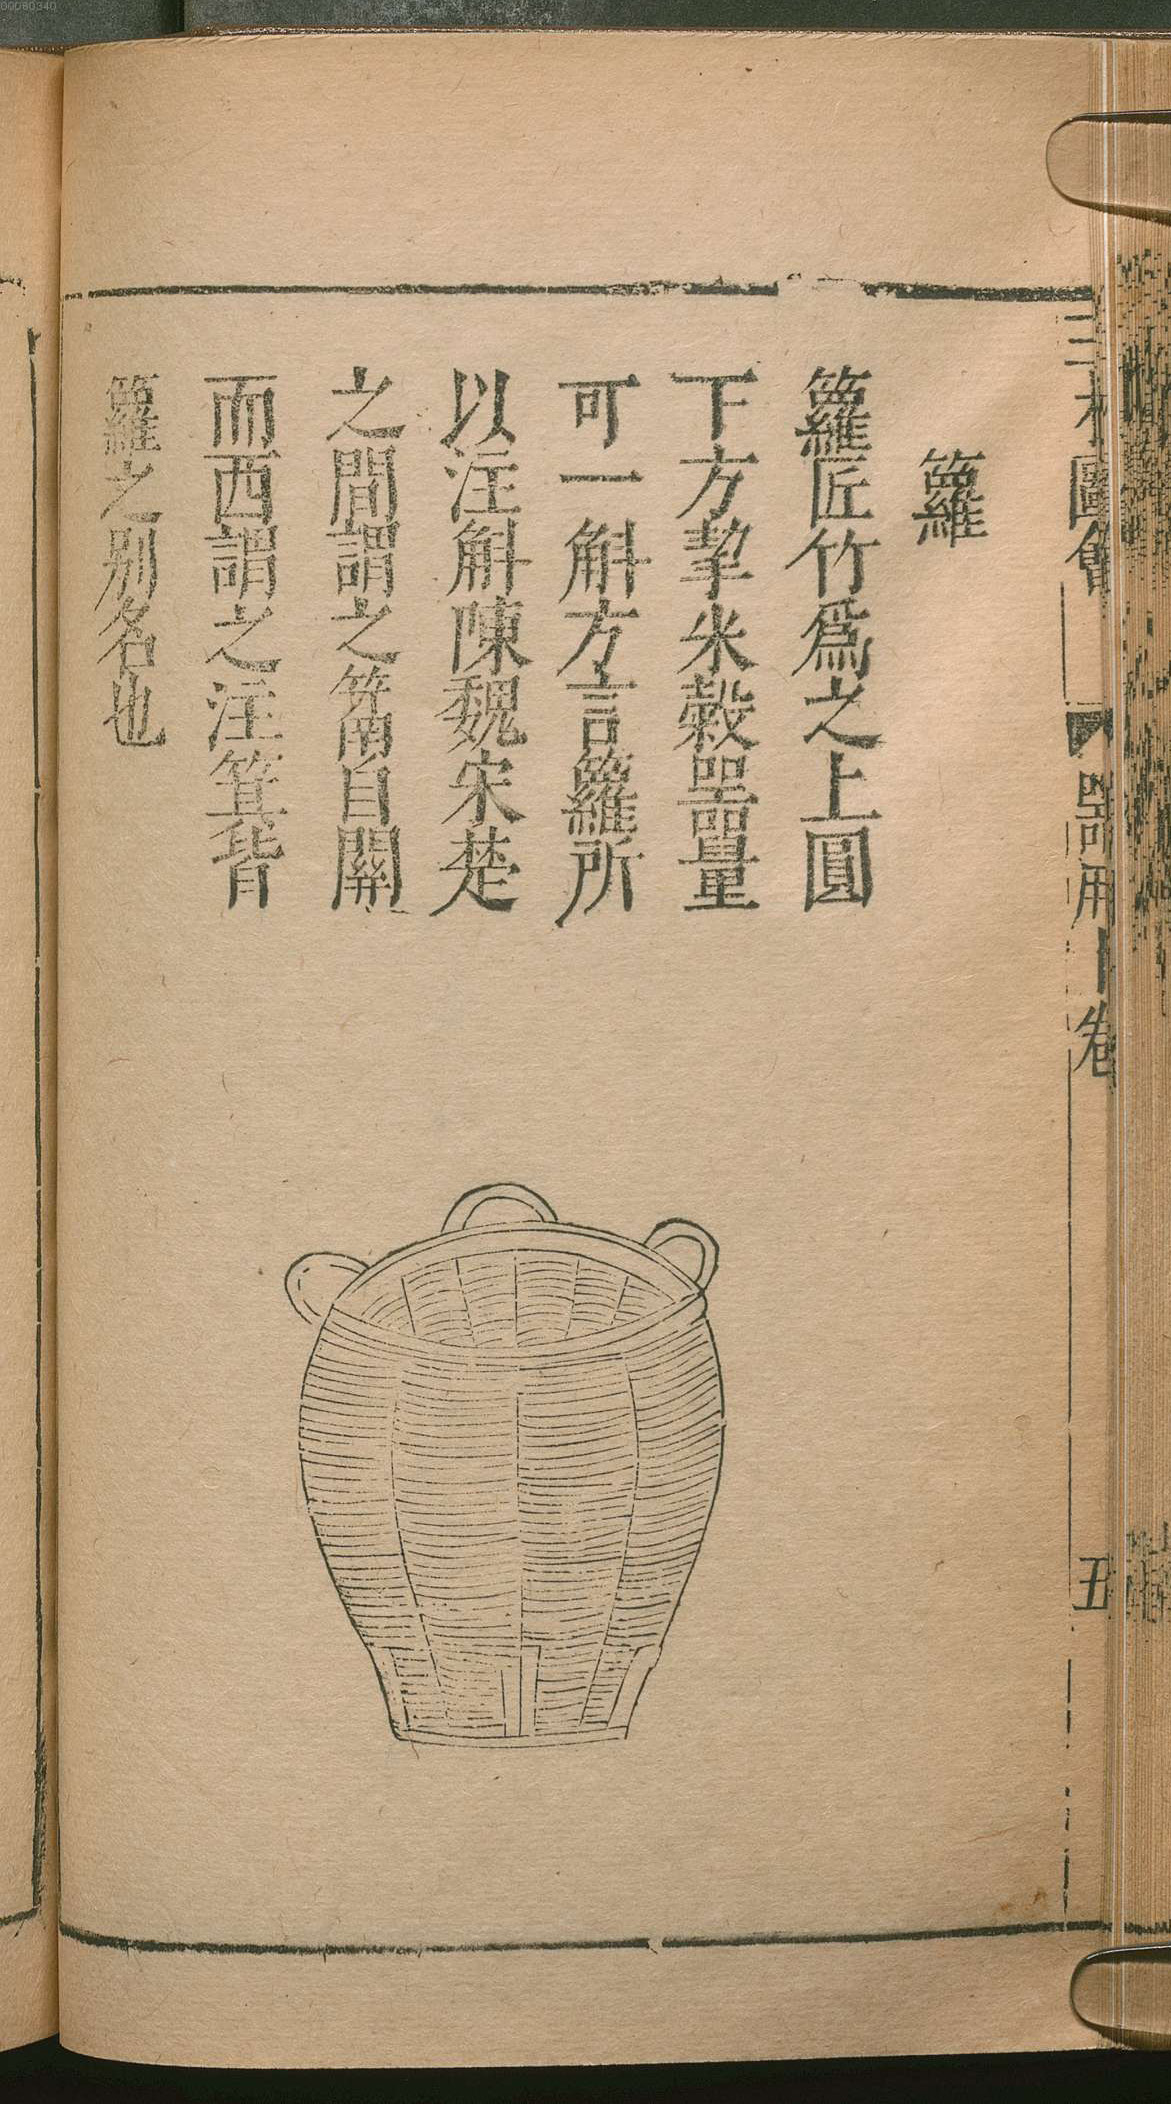 籮
籮匠竹爲之上圓
下方挈米穀噐量
可一斛方言籮所
以注斛陳魏宋楚
之間謂之篅自關
而西謂之注箕皆
籮之别名也
三才圖會
噐用十卷
五
00080340